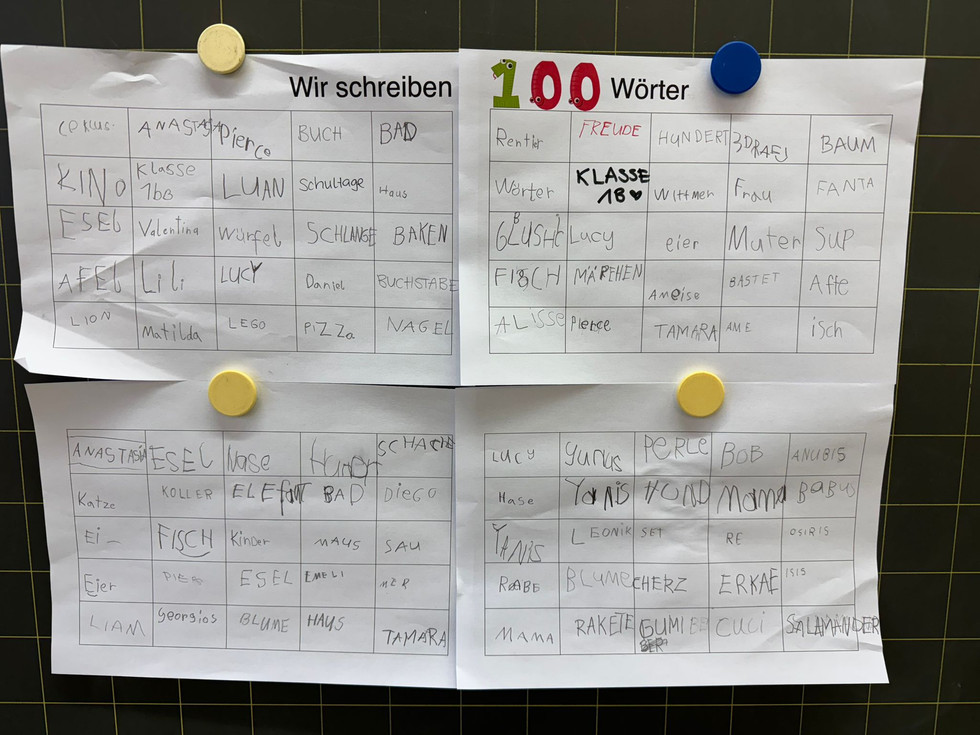 Wir schreiben 100 Wörter
ANASTASIA Pierce BUCH BAD
KINO Klasse 1b8 LUAN Schultage Haus
ESEL Valentina Würfel SCHLANGE BAKEN
AFEL Lili LUCY Daniel BUCHSTABE
LION Matilda LEGO PIZZa NAGEL
Rentir FREUDE HUNDERT BAUM
Wörter KLASSE 1B ♥ Wittmer Frau FANTA
Lucy eier Muter SUP
FISCH MÄRCHEN AMeise BASTET Affe
ALISSE Pierce TAMARA AME isch
ANASTASIA ESEL Nase
Katze KOLLER ELEfaNT BAD DieGO
Ei FISCH Kinder MAUS SAU
Eier ESEL EMELI
LIAM georgios BLUME HAUS TAMARA
LUCY PERLE BOB ANUBIS
Hase YaNiS HUND Mama
YANiS LEONIK SET RE OSIRIS
RABE BLUME HERZ ERKAE ISIS
MAMA RAKETE GUMIBEER CUCI SALAMANDER